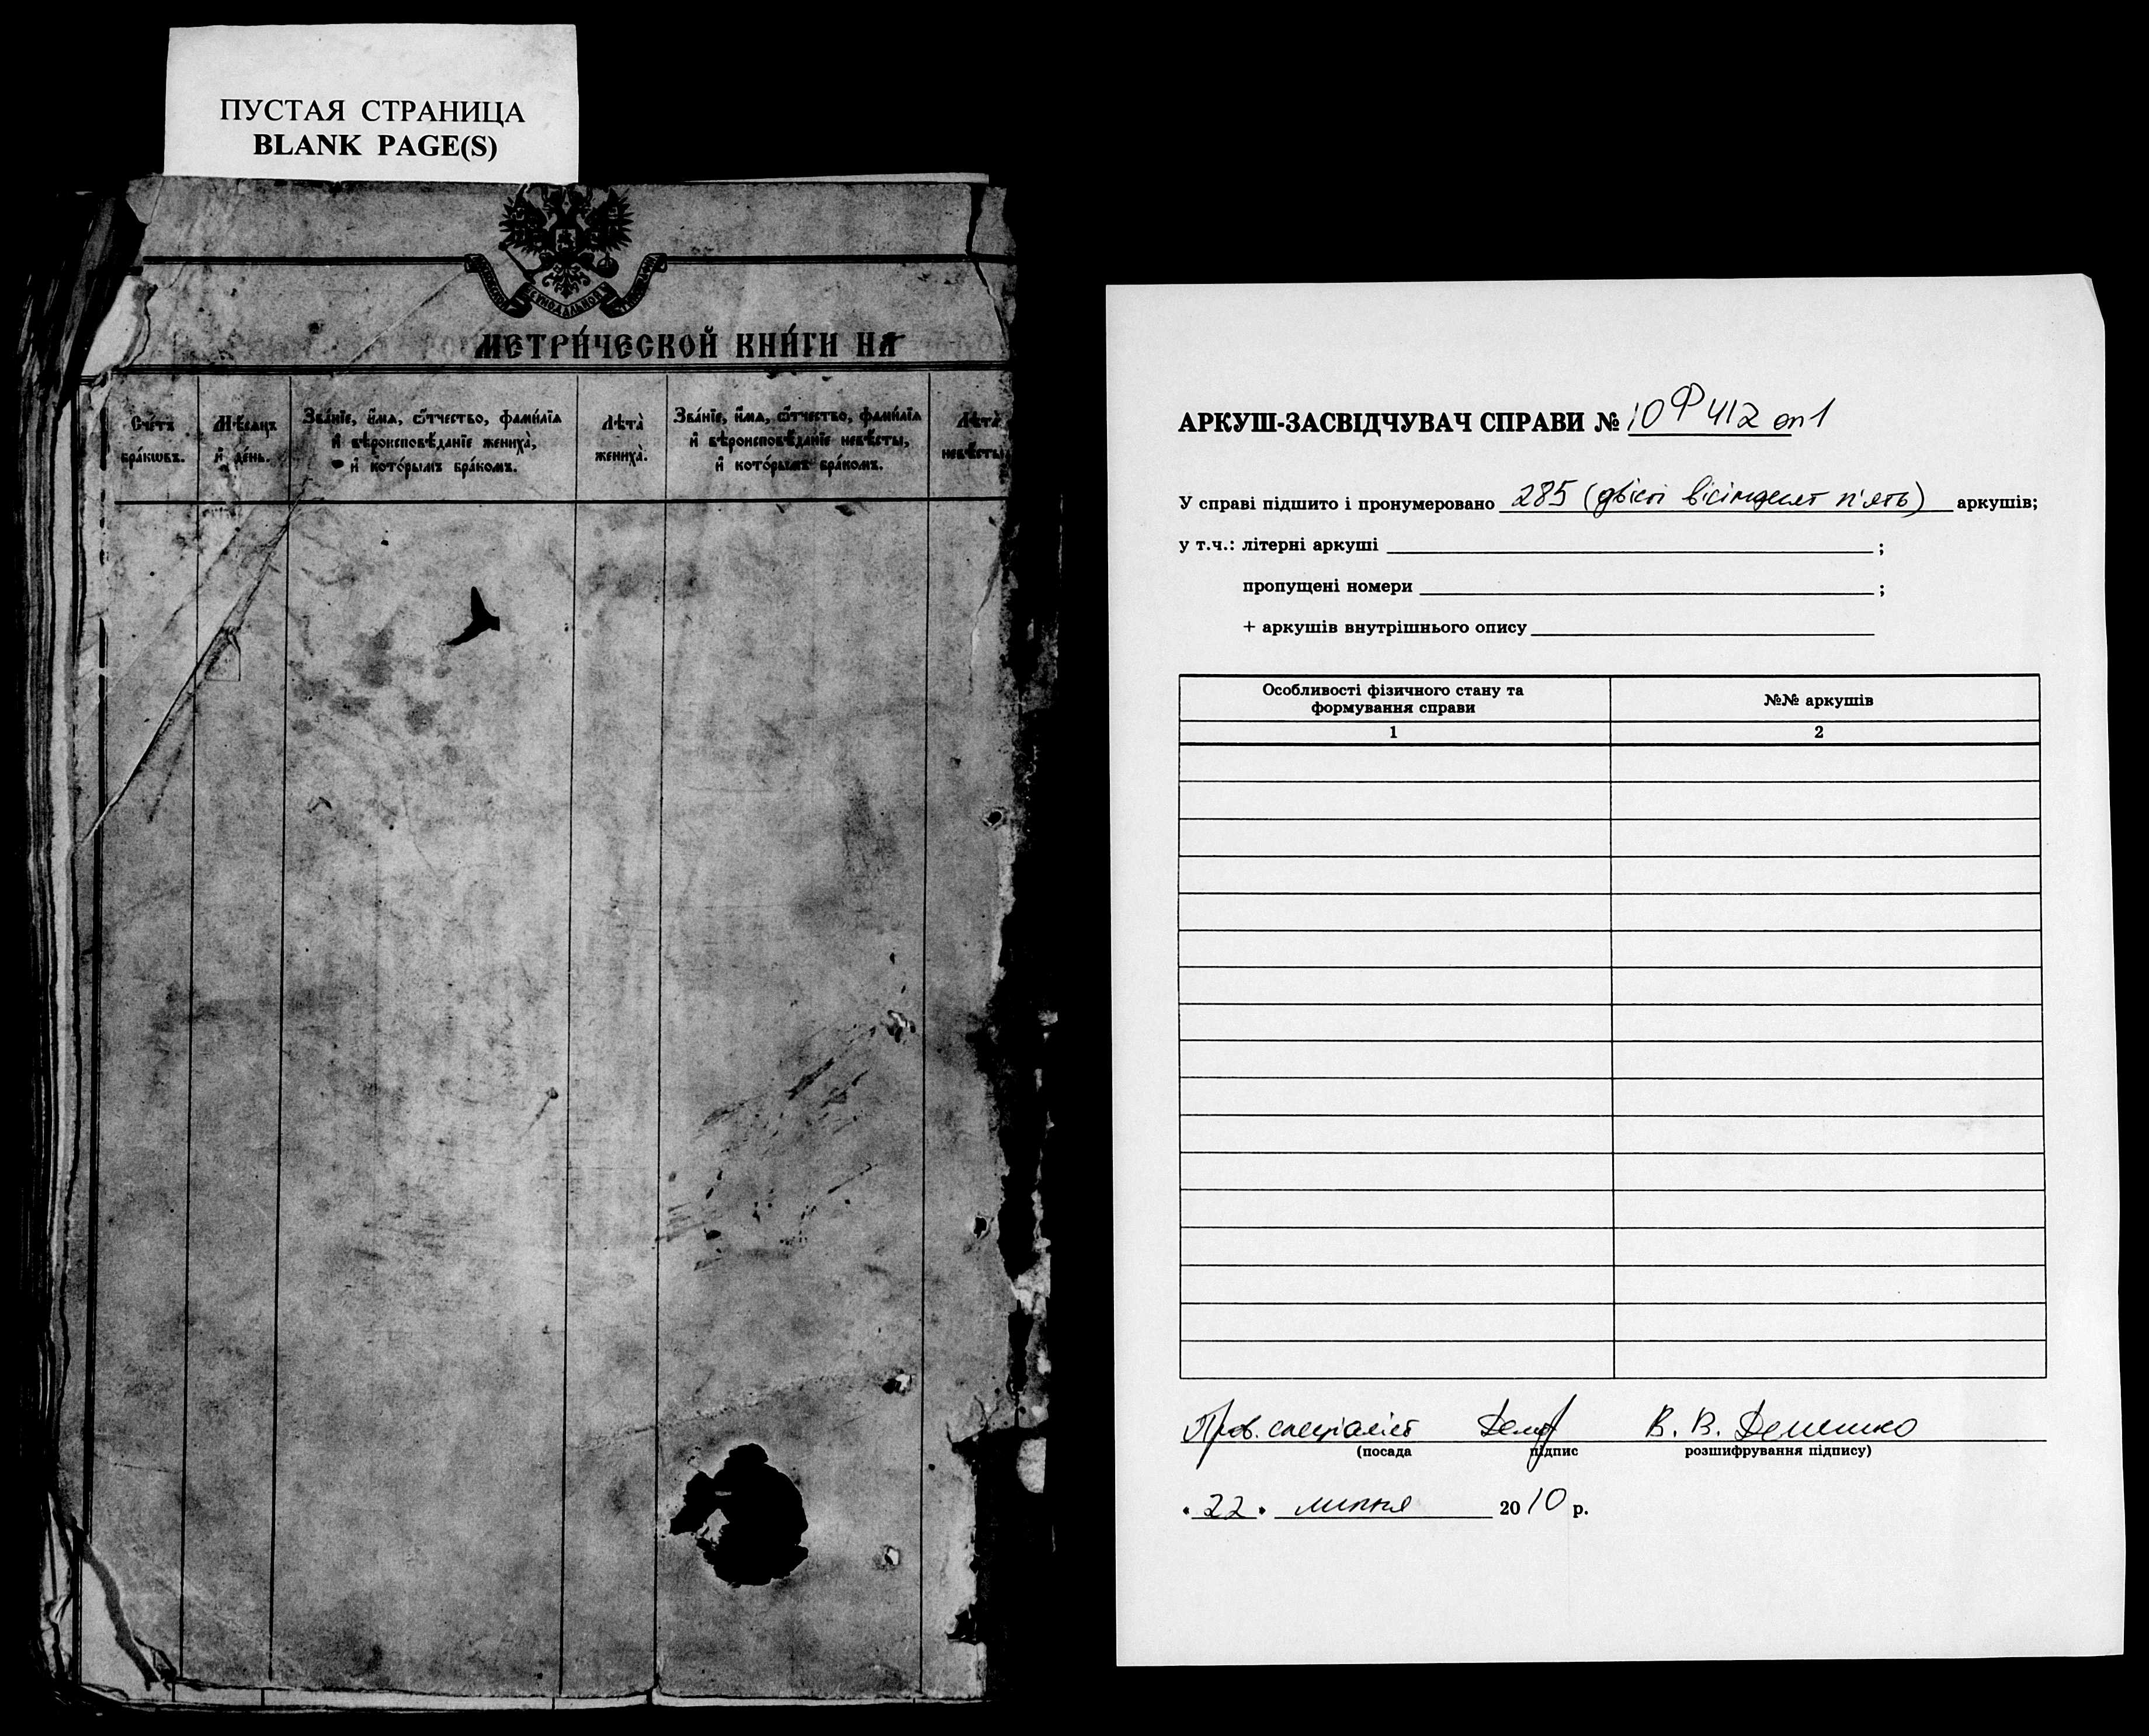 ПУСТАЯ СТРАНИЦА
BLANK PAGE(S)
СѴНОДАЛЬНОЙ
МЕТРИ́ЧЕСКОЙ КНИ́ГИ НА
Сче́тъ бра́кѡвъ.
Мѣ́сяцъ и҆ день.
Зва́нїе, и҆́мѧ, ѻ҆́тчество, фами́лїѧ и҆ вѣроисповѣ́данїе жениха̀, и҆ кото́рымъ бра́комъ.
Лѣта̀ жениха̀.
Зва́нїе, и҆́мѧ, ѻ҆́тчество, фами́лїѧ и҆ вѣроисповѣ́данїе невѣ́сты, и҆ кото́рымъ бра́комъ.
Лѣта̀ невѣ́сты
АРКУШ-ЗАСВІДЧУВАЧ СПРАВИ № 10 Ф 412 оп 1
У справі підшито і пронумеровано 285 (двісті вісімдесят п'ять) аркушів;
у т.ч.: літерні аркуші ;
пропущені номери ;
+ аркушів внутрішнього опису
Особливості фізичного стану та формування справи
№№ аркушів
1 2
Пров. спеціаліст В. В.
(посада підпис розшифрування підпису)
"22" липня 2010 р.